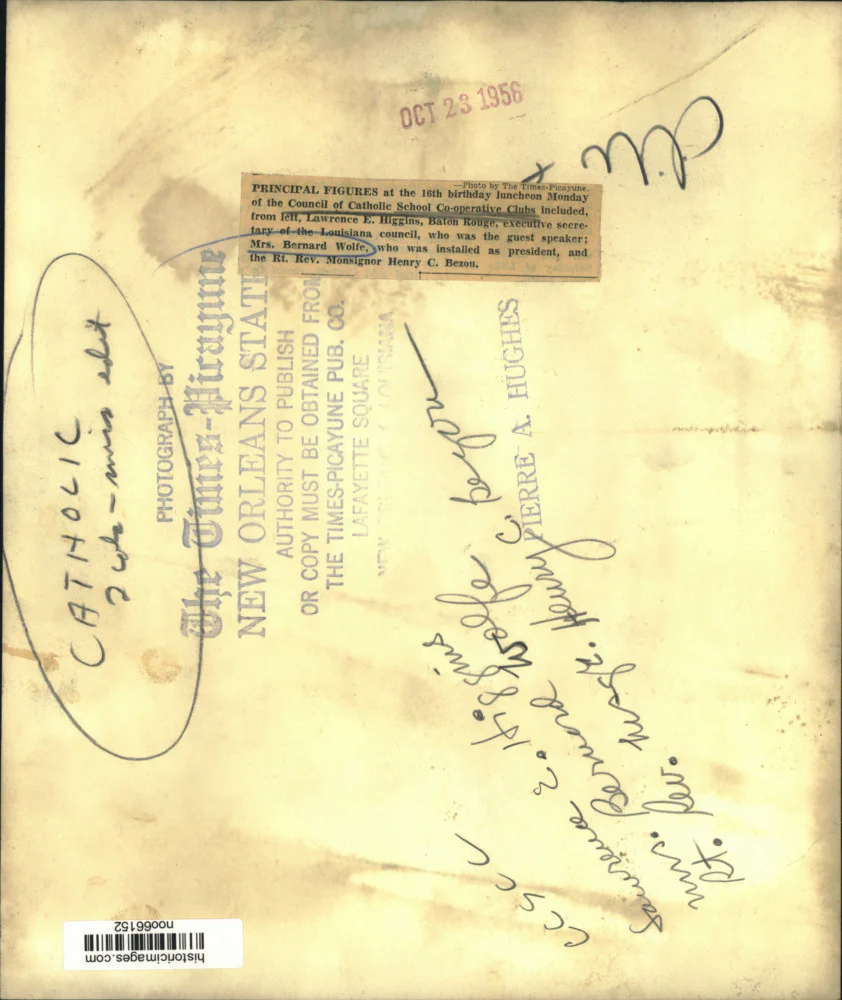 OCT 23 1956
—Photo by The Times-Picayune.
PRINCIPAL FIGURES at the 16th birthday luncheon Monday
of the Council of Catholic School Co-operative Clubs included,
from left, Lawrence E. Higgins, Baton Rouge, executive secre-
tary of the Louisiana council, who was the guest speaker;
Mrs. Bernard Wolfe, who was installed as president, and
the Rt. Rev. Monsignor Henry C. Bezou.
CATHOLIC
2 cols - miss edit
PHOTOGRAPH BY
The Times-Picayune
NEW ORLEANS STATE
AUTHORITY TO PUBLISH
OR COPY MUST BE OBTAINED FROM
THE TIMES-PICAYUNE PUB. CO.
LAFAYETTE SQUARE
NEW ORLEANS LOUISIANA
PIERRE A. HUGHES
CCSCC
Lawrence E. Higgins
Mrs. Bernard Wolfe
Rt. Rev. Msgr. Henry C. Bezou
historicimages.com
noo66152